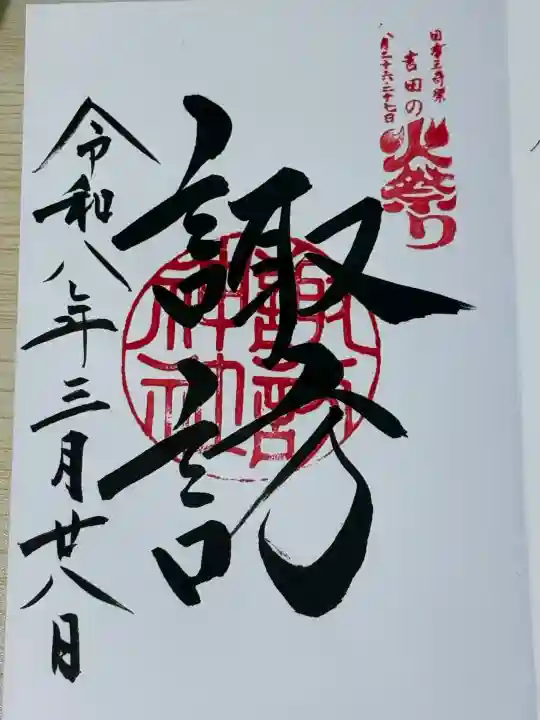 国指定重要
吉田の
八月二十六・二十七日
火祭り
諏訪
諏訪神社
令和八年三月廿八日